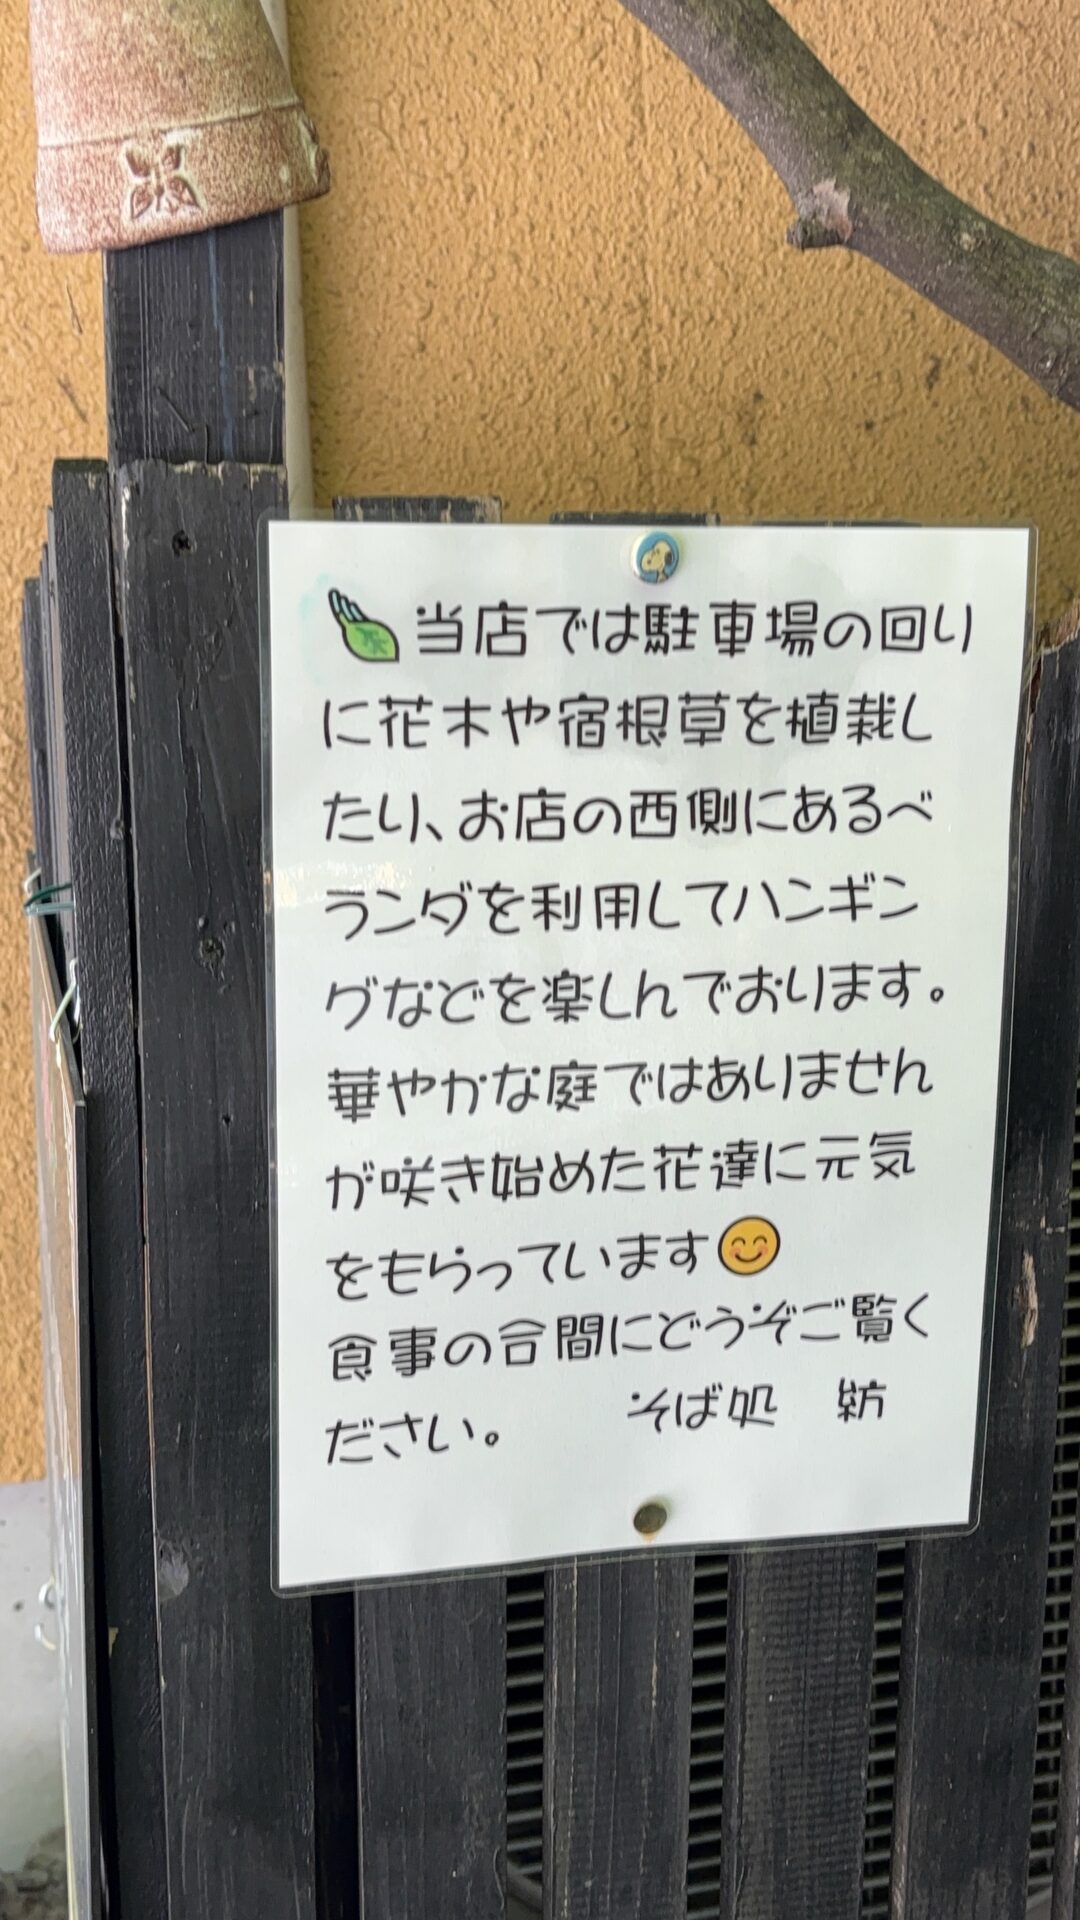 当店では駐車場の回り
に花木や宿根草を植栽し
たり、お店の西側にあるベ
ランダを利用してハンギン
グなどを楽しんでおります。
華やかな庭ではありません
が咲き始めた花達に元気
をもらっています😊
食事の合間にどうぞご覧く
ださい。　　そば処　紡